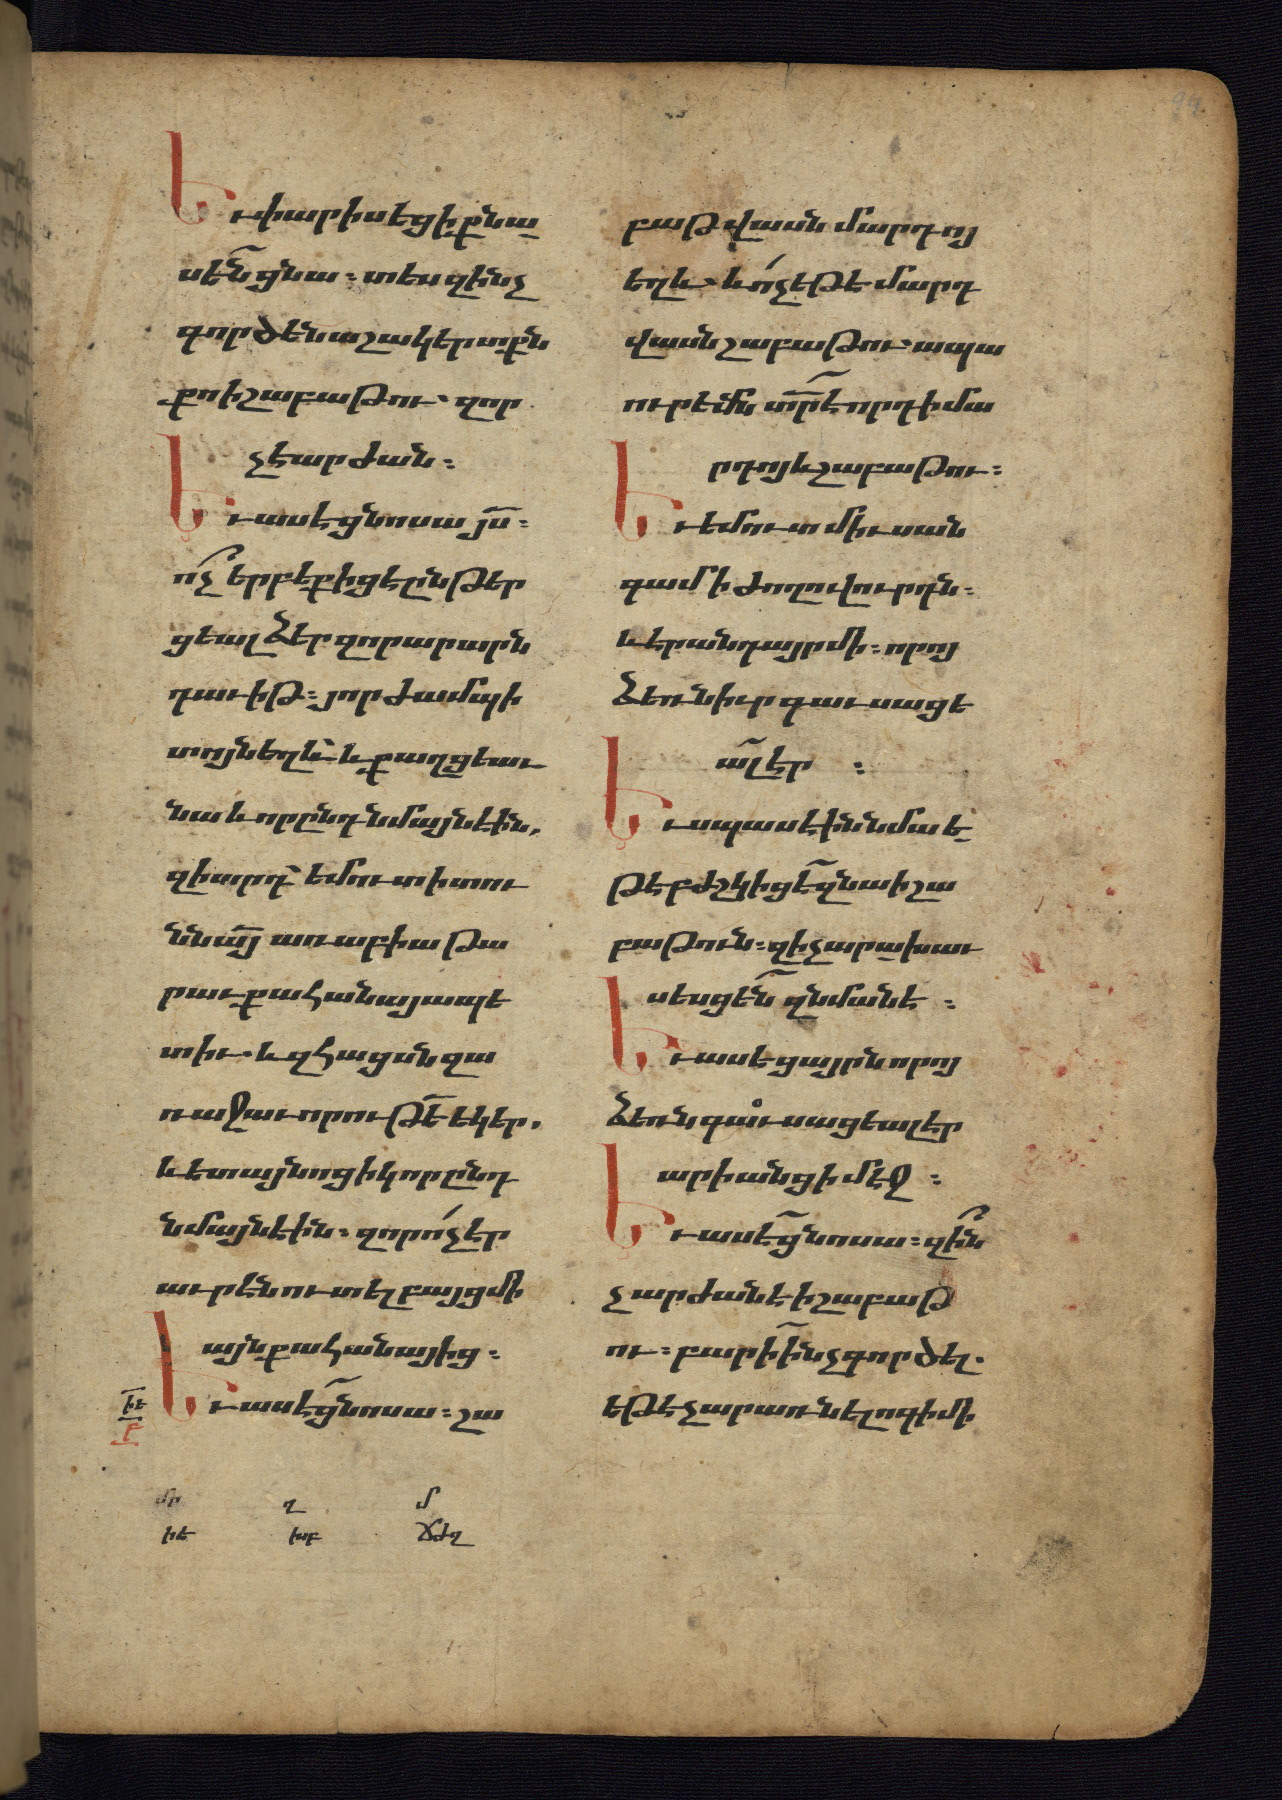 Եւ փարիսեցիքն ա
սեն ցնա։ տես զինչ
գործեն աշակերտքն
քո ի շաբաթու· զոր
չէ արժան։
Եւ ասէ ցնոսա յս։
ոչ երբեք իցէ ընթեր
ցեալ ձեր զոր արարն
դաւիթ։ յորժամ պի
տոյն եղև՝ և քաղցեաւ
նա և որ ընդ նմայն էին,
զիարդ՝ եմուտ ի տու
նն այ առ աբիաթա
րաւ քահանայապե
տիւ· և զհացսն զա
ռաջաւորութե եկեր,
և ետ այնոցիկ որ ընդ
նմայն էին։ զոր ոչ էր
աւրէն ուտել բայց մի
այն քահանայից։
Եւ ասէ ցնոսա։ շա
բաթ վասն մարդոյ
եղև· և ոչ եթե մարդ
վասն շաբաթու· ապա
ուրեմն տր է որդի մա
րդոյ և շաբաթու։
Եւ եմուտ միւսան
գամ ի ժողովուրդն։
և էր անդ այր մի։ որոյ
ձեռն իւր գաւսացե
ալ էր ։
Եւ սպասէին նմա ե
թե բժշկիցէ զնա ի շա
բաթուն։ զի չարախաւ
սեսցեն զնմանէ ։
Եւ ասէ ցայրն որոյ
ձեռն գաւսացեալ էր
արի անց ի մէջ ։
Եւ ասէ ցնոսա։ զին
չ արժան է ի շաբաթ
ու։ բարի ինչ գործել·
եթե չար առնել ոգի մի
իե
բ
մր ղ մ
իե խբ ճժղ